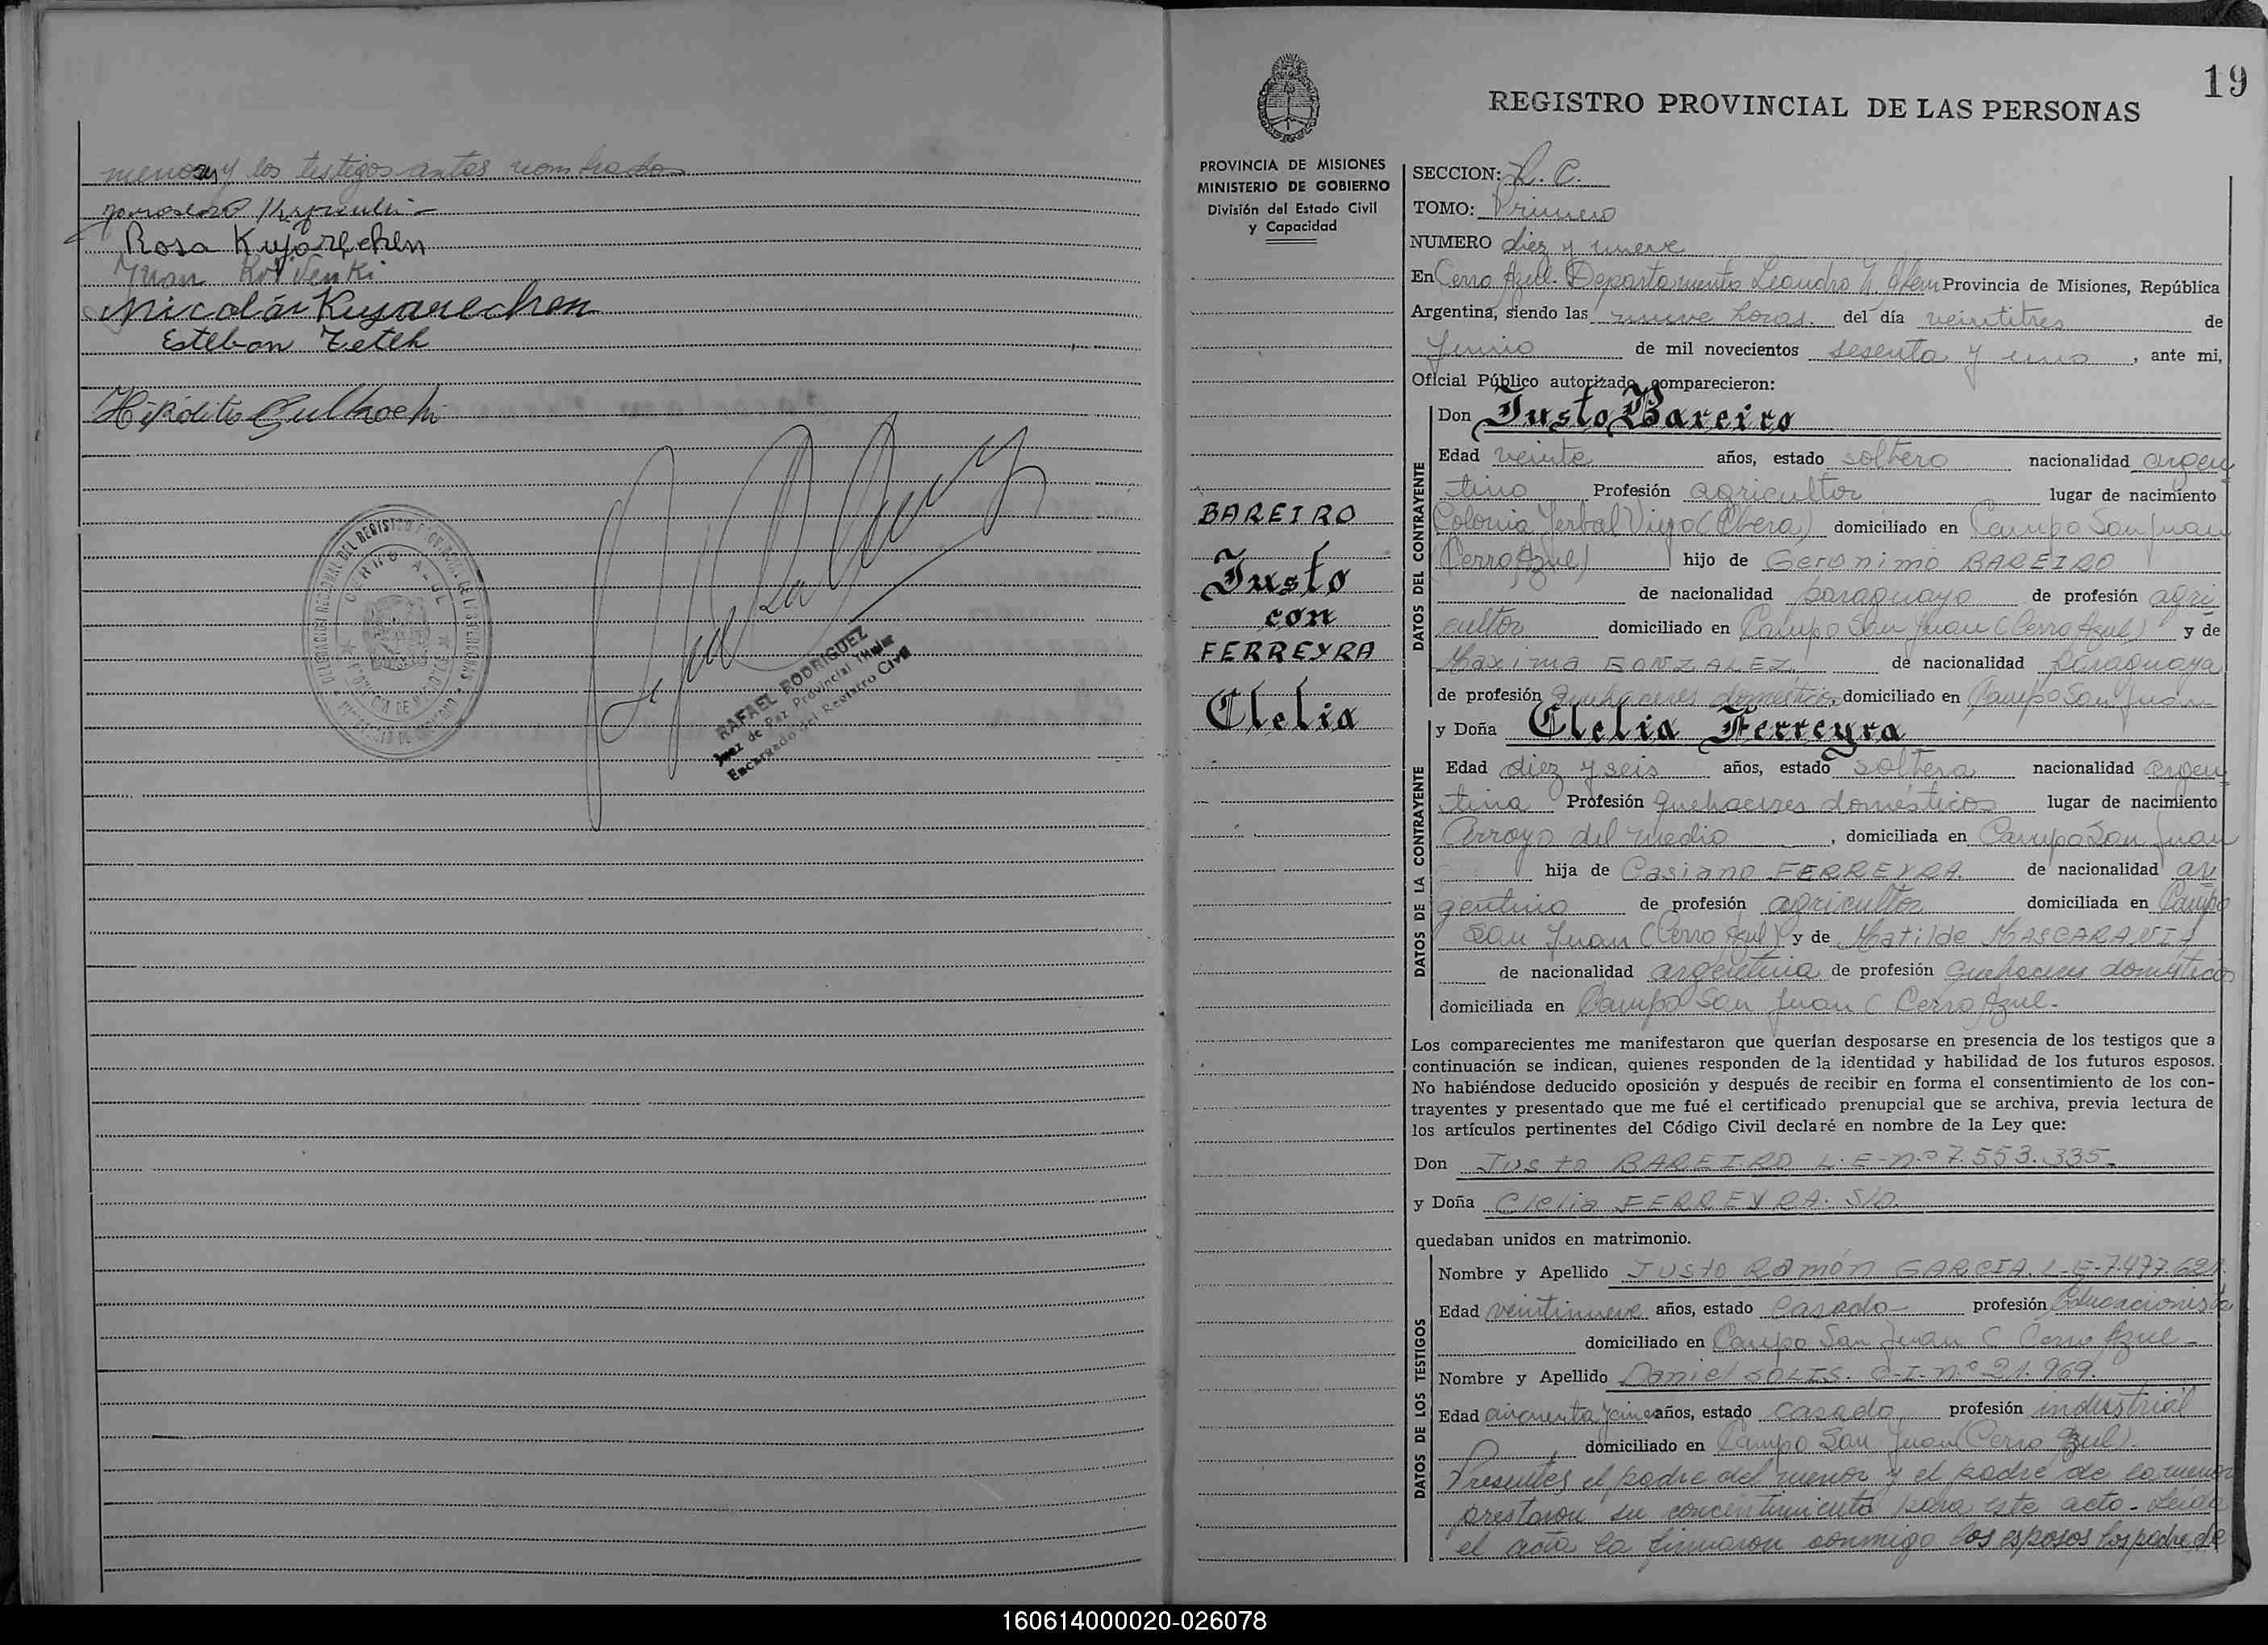 menor y los testigos antes nombrados
Rosa Kujarechen
Juan
Nicolás Kujarechen
Esteban Zetek
Hipólito
CERRO AZUL
RAFAEL RODRIGUEZ
Juez de Paz Provincial Titular
Encargado del Registro Civil
19
REGISTRO PROVINCIAL DE LAS PERSONAS
PROVINCIA DE MISIONES
MINISTERIO DE GOBIERNO
División del Estado Civil
y Capacidad
BAREIRO
Justo
con
FERREYRA
Clelia
SECCION: R. C.
TOMO: Primero
NUMERO diez y nueve
En Cerro Azul. Departamento Leandro N. Alem Provincia de Misiones, República
Argentina, siendo las nueve horas. del día veintitres de
Junio de mil novecientos sesenta y uno, ante mi,
Oficial Público autorizado, comparecieron:
DATOS DEL CONTRAYENTE
Don Justo Bareiro
Edad veinte años, estado soltero nacionalidad argen
tino Profesión agricultor lugar de nacimiento
Colonia Yerbal Viejo (Oberá) domiciliado en Campo San Juan
(Cerro Azul) hijo de Geronimo BAREIRO
de nacionalidad paraguayo de profesión agri
cultor domiciliado en Campo San Juan (Cerro Azul) y de
Maxima GONZALEZ. de nacionalidad paraguaya
de profesión quehaceres domésticos, domiciliado en Campo San Juan
DATOS DE LA CONTRAYENTE
y Doña Clelia Ferreyra
Edad diez y seis años, estado soltera nacionalidad argen
tina Profesión quehaceres domésticos lugar de nacimiento
Arroyo del Medio, domiciliada en Campo San Juan
hija de Casiano FERREYRA. de nacionalidad ar
gentino de profesión agricultor domiciliada en Campo
San Juan (Cerro Azul) y de Matilde MASCARANIA
de nacionalidad argentina de profesión quehaceres domésticos
domiciliada en Campo San Juan ( Cerro Azul.-
Los comparecientes me manifestaron que querían desposarse en presencia de los testigos que a
continuación se indican, quienes responden de la identidad y habilidad de los futuros esposos.
No habiéndose deducido oposición y después de recibir en forma el consentimiento de los con-
trayentes y presentado que me fué el certificado prenupcial que se archiva, previa lectura de
los artículos pertinentes del Código Civil declaré en nombre de la Ley que:
Don Justo BAREIRO L.E-nº 7.553.335.
y Doña Clelia FERREYRA. S/D.
quedaban unidos en matrimonio.
DATOS DE LOS TESTIGOS
Nombre y Apellido Justo Ramón GARCIA. L-E-7.477.621.
Edad veintinueve años, estado Casado- profesión Educacionista
domiciliado en Campo San Juan ( Cerro Azul-
Nombre y Apellido Daniel SOLIS. C-I-nº 21.969.
Edad cincuenta y cinco años, estado casado profesión industrial
domiciliado en Campo San Juan (Cerro Azul).
Presentes el padre del menor y el padre de la menor
prestaron su concentimiento para este acto- Leida
el acta la firmaron conmigo los esposos los padre de
160614000020-026078